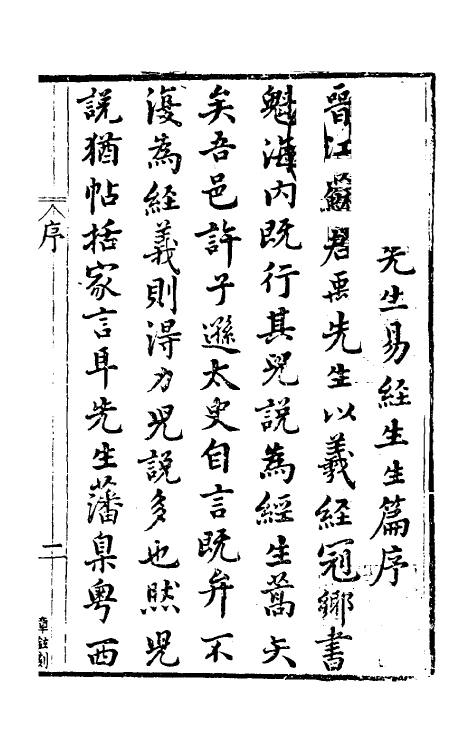 先生易經生生篇序
晉江蘇君禹先生以羲經冠鄉書
魁海内既行其兒說為經生蒿矢
矣吾邑許子遜太史自言既弁不
復為經義則得力兒說多也然兒
說猶帖括家言耳先生藩臬粵西
序
二